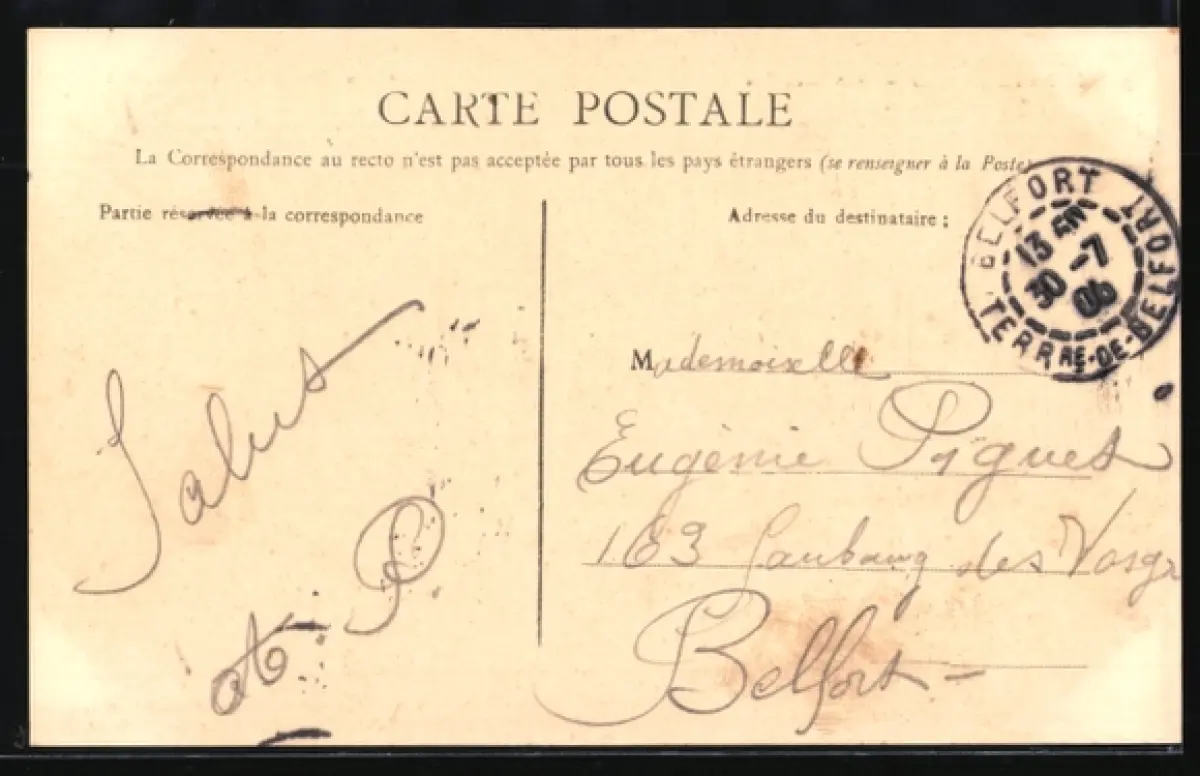 CARTE POSTALE
La Correspondance au recto n'est pas acceptée par tous les pays étrangers (se renseigner à la Poste)
Partie réservée à la correspondance
Adresse du destinataire :
BELFORT
13
30 -7
06
TERRE-DE-BELFORT
Mademoiselle
Eugénie Piguet
163 Faubourg des Vosg
Belfort
Salut
P.